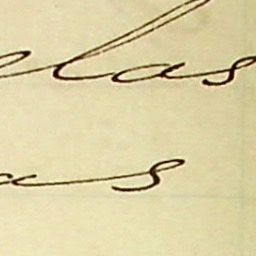 elas
as